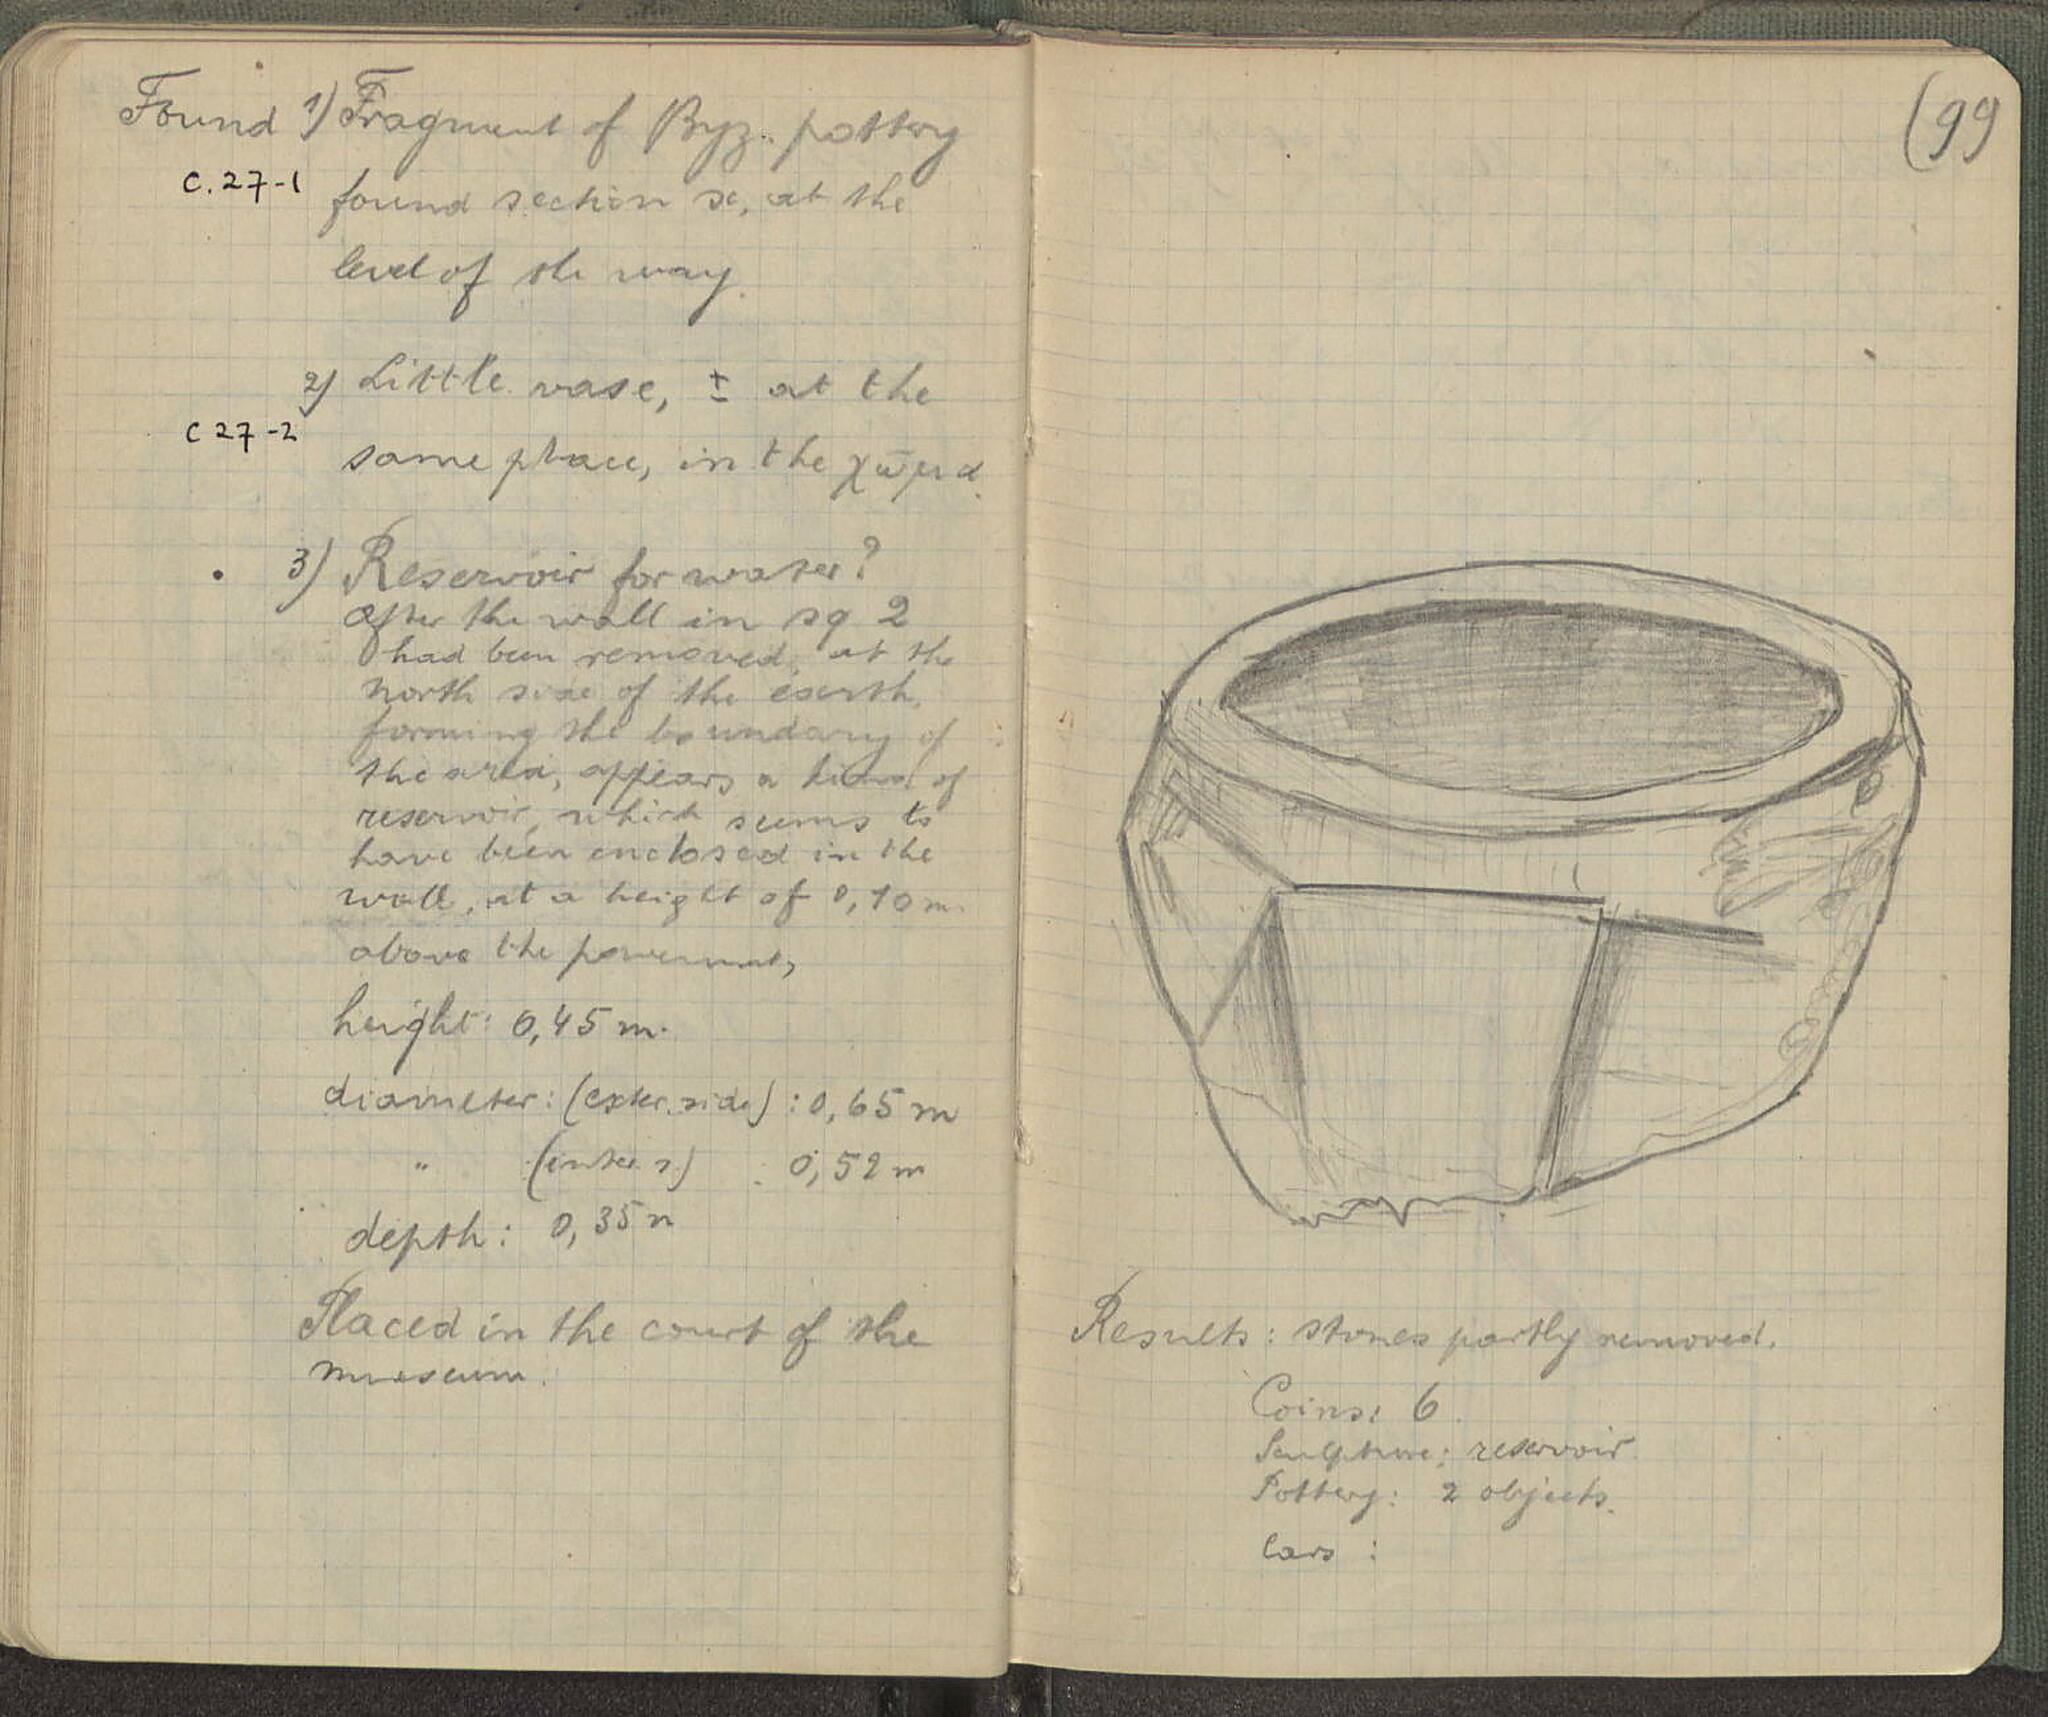 Found 1) Fragment of Byz. pottery
C.27-1
found section x, at the
level of the way.
2) Little vase, ± at the
C 27-2
same place, in the χῶμα.
3) Reservoir for water?
After the wall in sq 2
had been removed, at the
north side of the earth,
forming the boundary of
the area, appears a kind of
reservoir, which seems to
have been enclosed in the
wall, at a height of 0,10 m.
above the pavement,
height: 0,45 m.
diameter: (exter. side) : 0,65 m
" (inter s.) : 0,52 m
depth: 0,35 m
Placed in the court of the
museum.
(99
Results: stones partly removed.
Coins: 6.
Sculpture: reservoir
Pottery: 2 objects.
Cars :